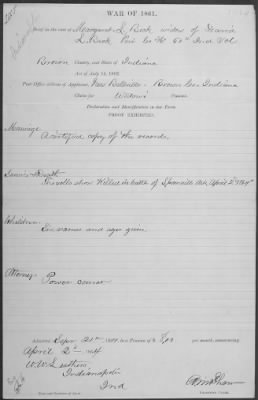 WAR OF 1861.
Brief in the case of Margaret L Beck widow of
L Beck Co H 60th Ind Vol
Brown County, and State of Indiana
Act of July 14, 1862.
Post Office address of Applicant, New Bellsville - Brown Co Indiana
Claim for Widows
Declaration and Identification in due Form.
PROOF EXHIBITED.
Marriage
A certified copy of the records.
Rolls show Killed in battle of April 8th 1864
Children
Six names and ages given
Attorney
Power correct
Admitted Sept 21st 1864, to a Pension of $ 8,00 per month, commencing
April 1864
Indianapolis
Ind